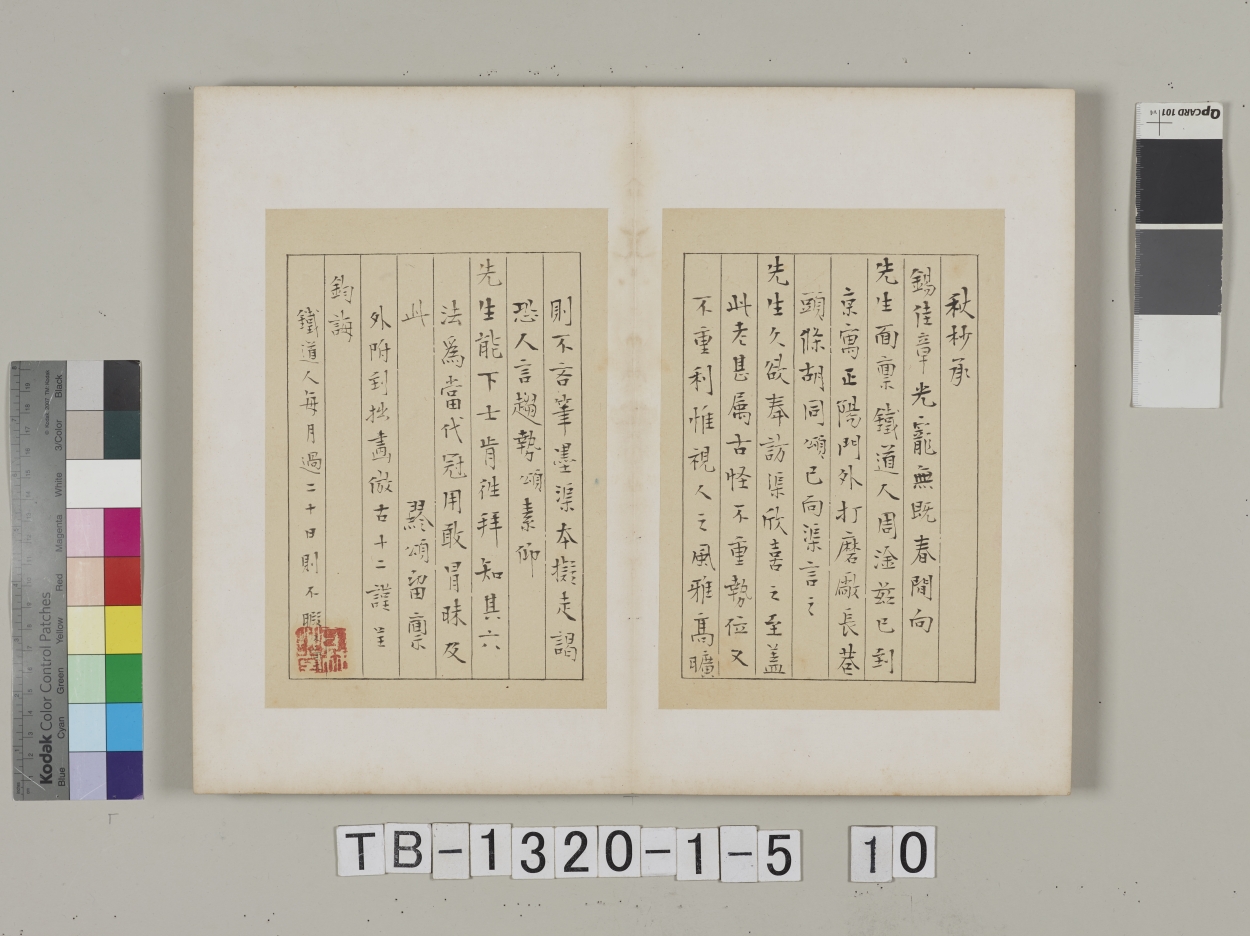 秋杪承
錫佳章光寵無既春間向
先生面禀鐵道人周淦茲已到
京寓正陽門外打磨廠長巷
頭條胡同頌已向渠言之
先生久欲奉訪渠欣喜之至盖
此老甚属古怪不重勢位又
不重利惟視人之風雅高曠
則不吝筆墨渠本擬走謁
恐人言趨勢頌素仰
先生能下士肯徃拜知其六
法爲當代冠用敢冒昧及
此 頌留禀
外附到拙畫倣古十二謹呈
鈞誨
鐵道人每月過二十日則不暇
QpCARD 101
Kodak Color Control Patches
Blue Cyan Green Yellow Red Magenta White 3/Color Black
TB-1320-1-5 10